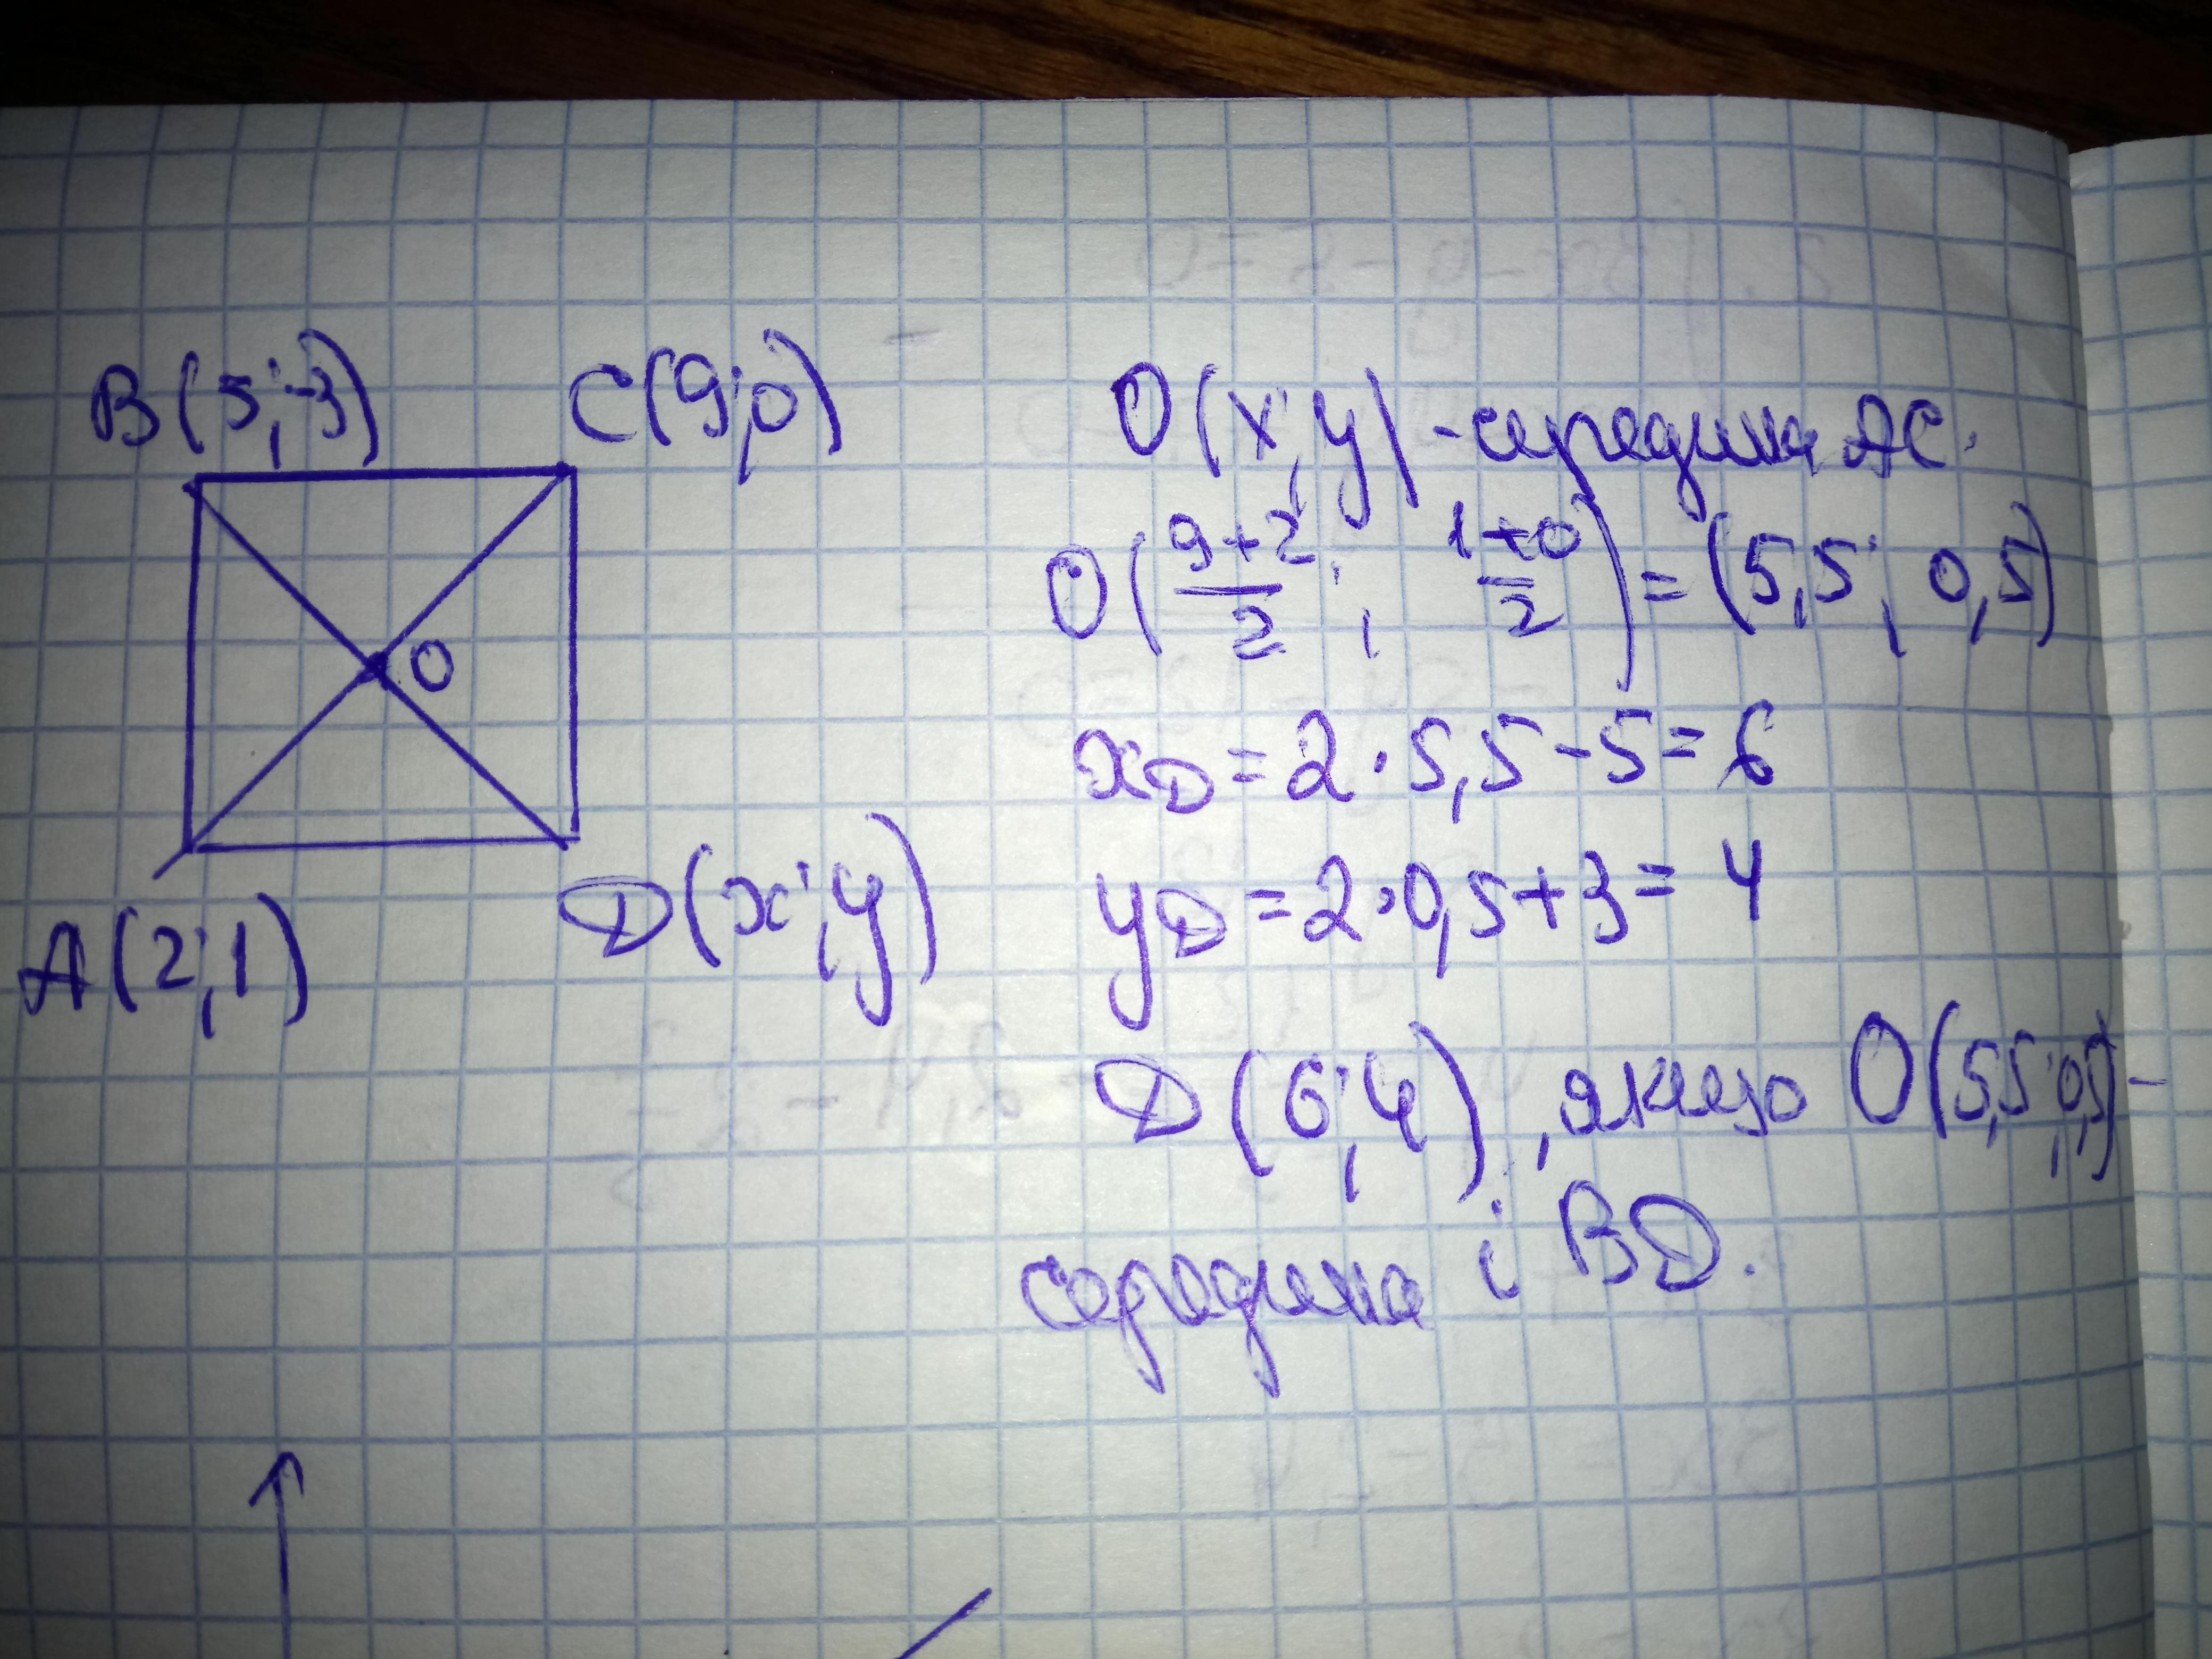 B(5;-3)
C(9;0)
O
A(2;1)
D(x;y)
O(x;y)-середина AC.
O(9+2/2; 1+0/2)=(5,5; 0,5)
xD=2·5,5-5=6
yD=2·0,5+3=4
D(6;4), якщо O(5,5;0,5)-
середина і BD.